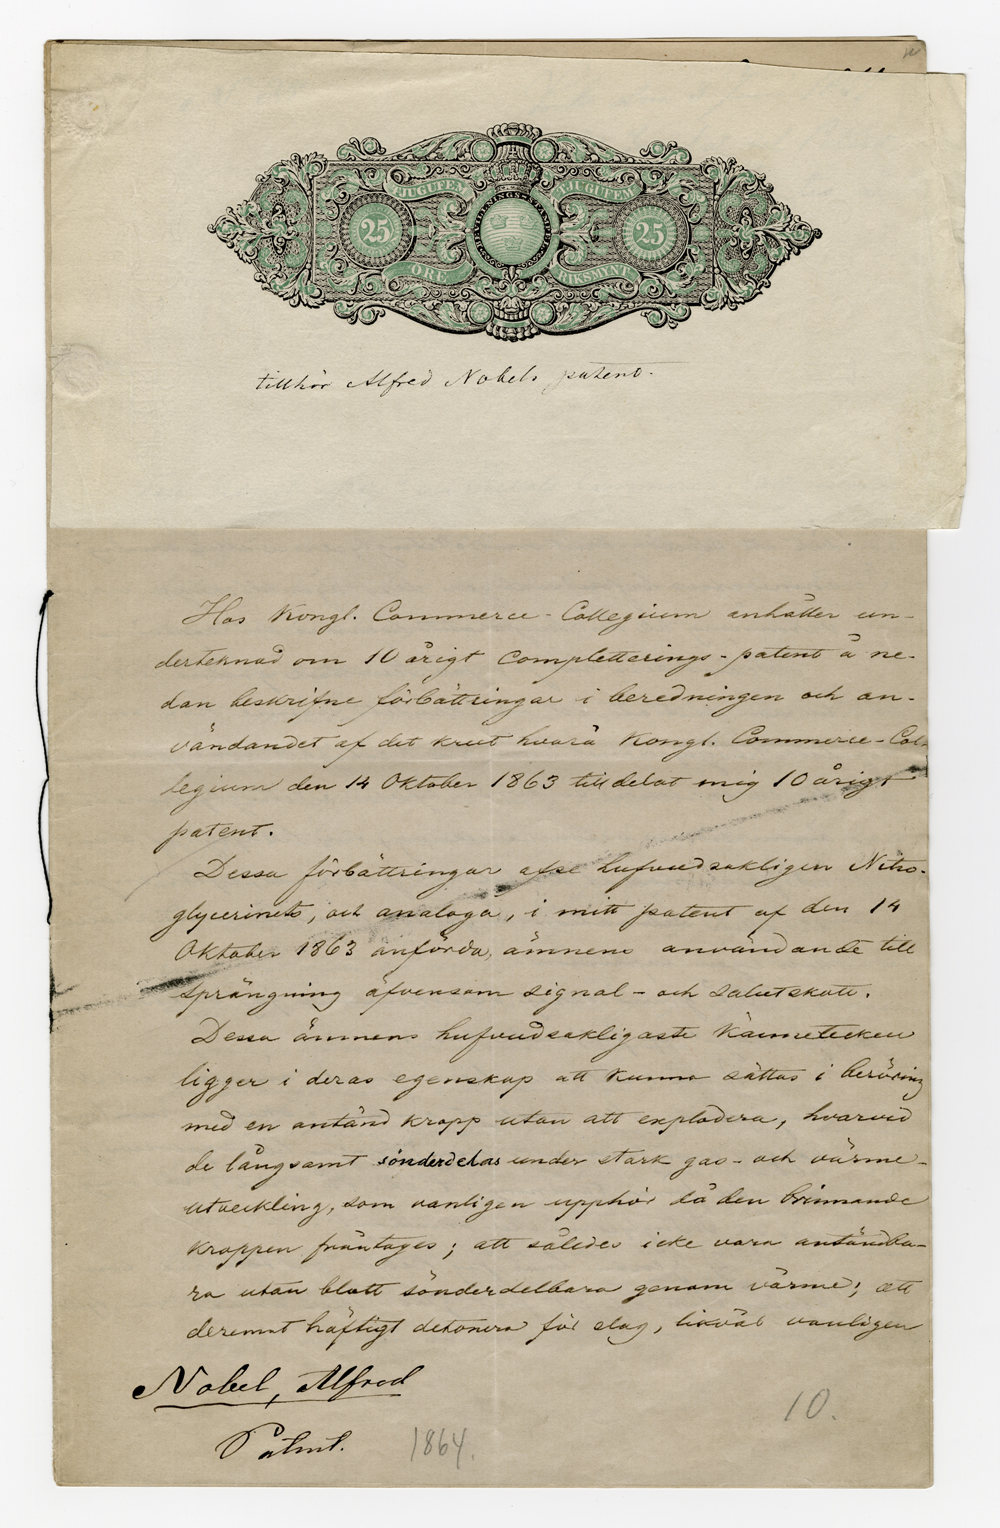 TJUGUFEM TJUGUFEM
25 25
ÖRE RIKSMYNT
tillhör Alfred Nobels patent.
Hos Kongl. Commerce-Collegium anhåller un-
dertecknad om 10 årigt Completterings-patent å ne-
dan beskrifne förbättringar i beredningen och an-
vändandet af det krut hvarå Kongl. Commerce-Col-
legium den 14 Oktober 1863 tilldelat mig 10 årigt
patent.
Dessa förbättringar afse hufvudsakligen Nitro-
glycerinets, och analoga, i mitt patent af den 14
Oktober 1863 anförda, ämnens användande till
sprängning äfvensom signal- och salutskott.
Dessa ämnens hufvudsakligaste kännetecken
ligger i deras egenskap att kunna sättas i beröring
med en antänd kropp utan att explodera, hvarvid
de långsamt sönderdelas under stark gas- och värme-
utveckling, som vanligen upphör då den brinnande
kroppen fråntages; att således icke vara antändba-
ra utan blott sönderdelbara genom värme; att
deremot häftigt detonera för slag, likväl vanligen
Nobel, Alfred
10.
Patent.
1864.